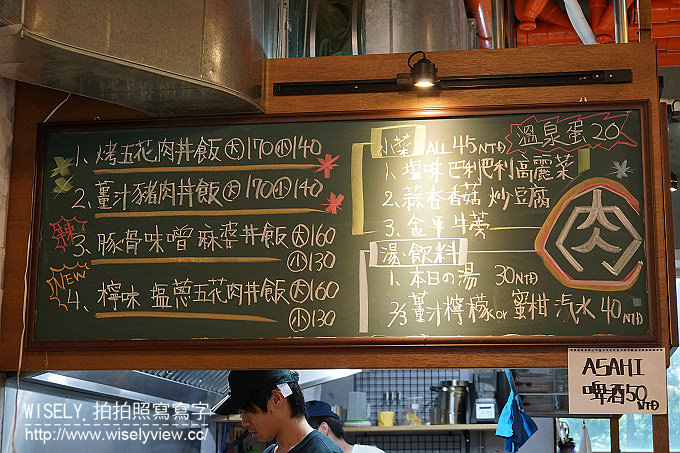 1、烤五花肉丼飯大170小140
2、薑汁豬肉丼飯大170小140
辣
3、豚骨味噌麻婆丼飯大160
小130
NEW
4、檸味 塩蔥五花肉丼飯大160
小130
小菜 ALL 45NTD
溫泉蛋20
1、塩味巴利肥利高麗菜
2、蒜香香菇炒豆腐
3、金平牛蒡
肉
湯·飲料
1、本日の湯 30NTD
2/3 薑汁檸檬or蜜柑汽水40NTD
ASAHI
啤酒50
NTD
WISELY, 拍拍照寫寫字
http://www.wiselyview.cc/